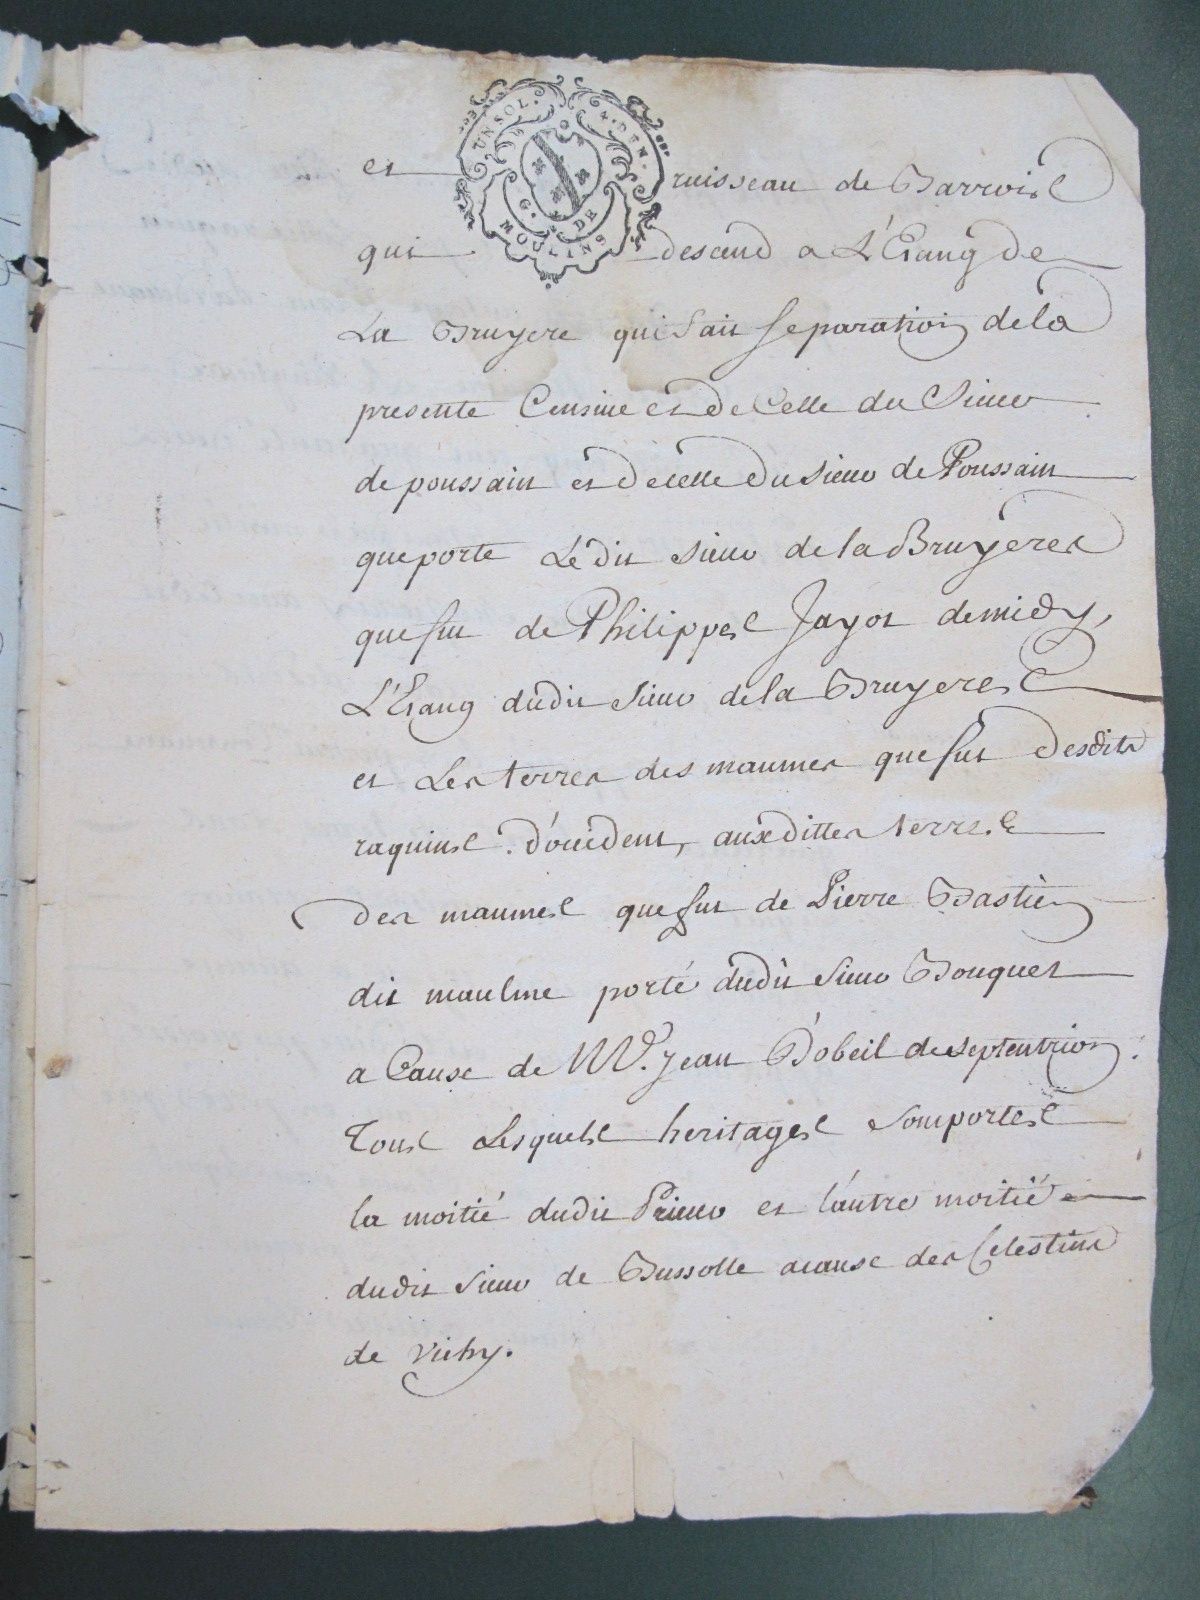 UN SOL. 4. DEN.
G. DE
MOULINS
et ruisseau de Barrois
qui descend a L'Etang de
La Bruyere qui fait separation dela
presente Censive et de Celle du Sieur
de poussain et decelle du sieur de Poussain
que porte Ledit sieur de la Bruyeres
que fut de Philippes Jayot demidy,
L'Etang dudit sieur dela Bruyeres
et Les terres des maumes que fut desdits
raquins. d'occident, aux dittes terres
des maumes que fut de Pierre Bastien
dit maulme porté dudit sieur Bouquet
a Cause de Me. Jean Dobeil de septentrion.
Tous Lesquels heritages somportes
la moitié dudit Prieur et l'autre moitié
dudit sieur de Bussolle acause des Celestins
de vichy.